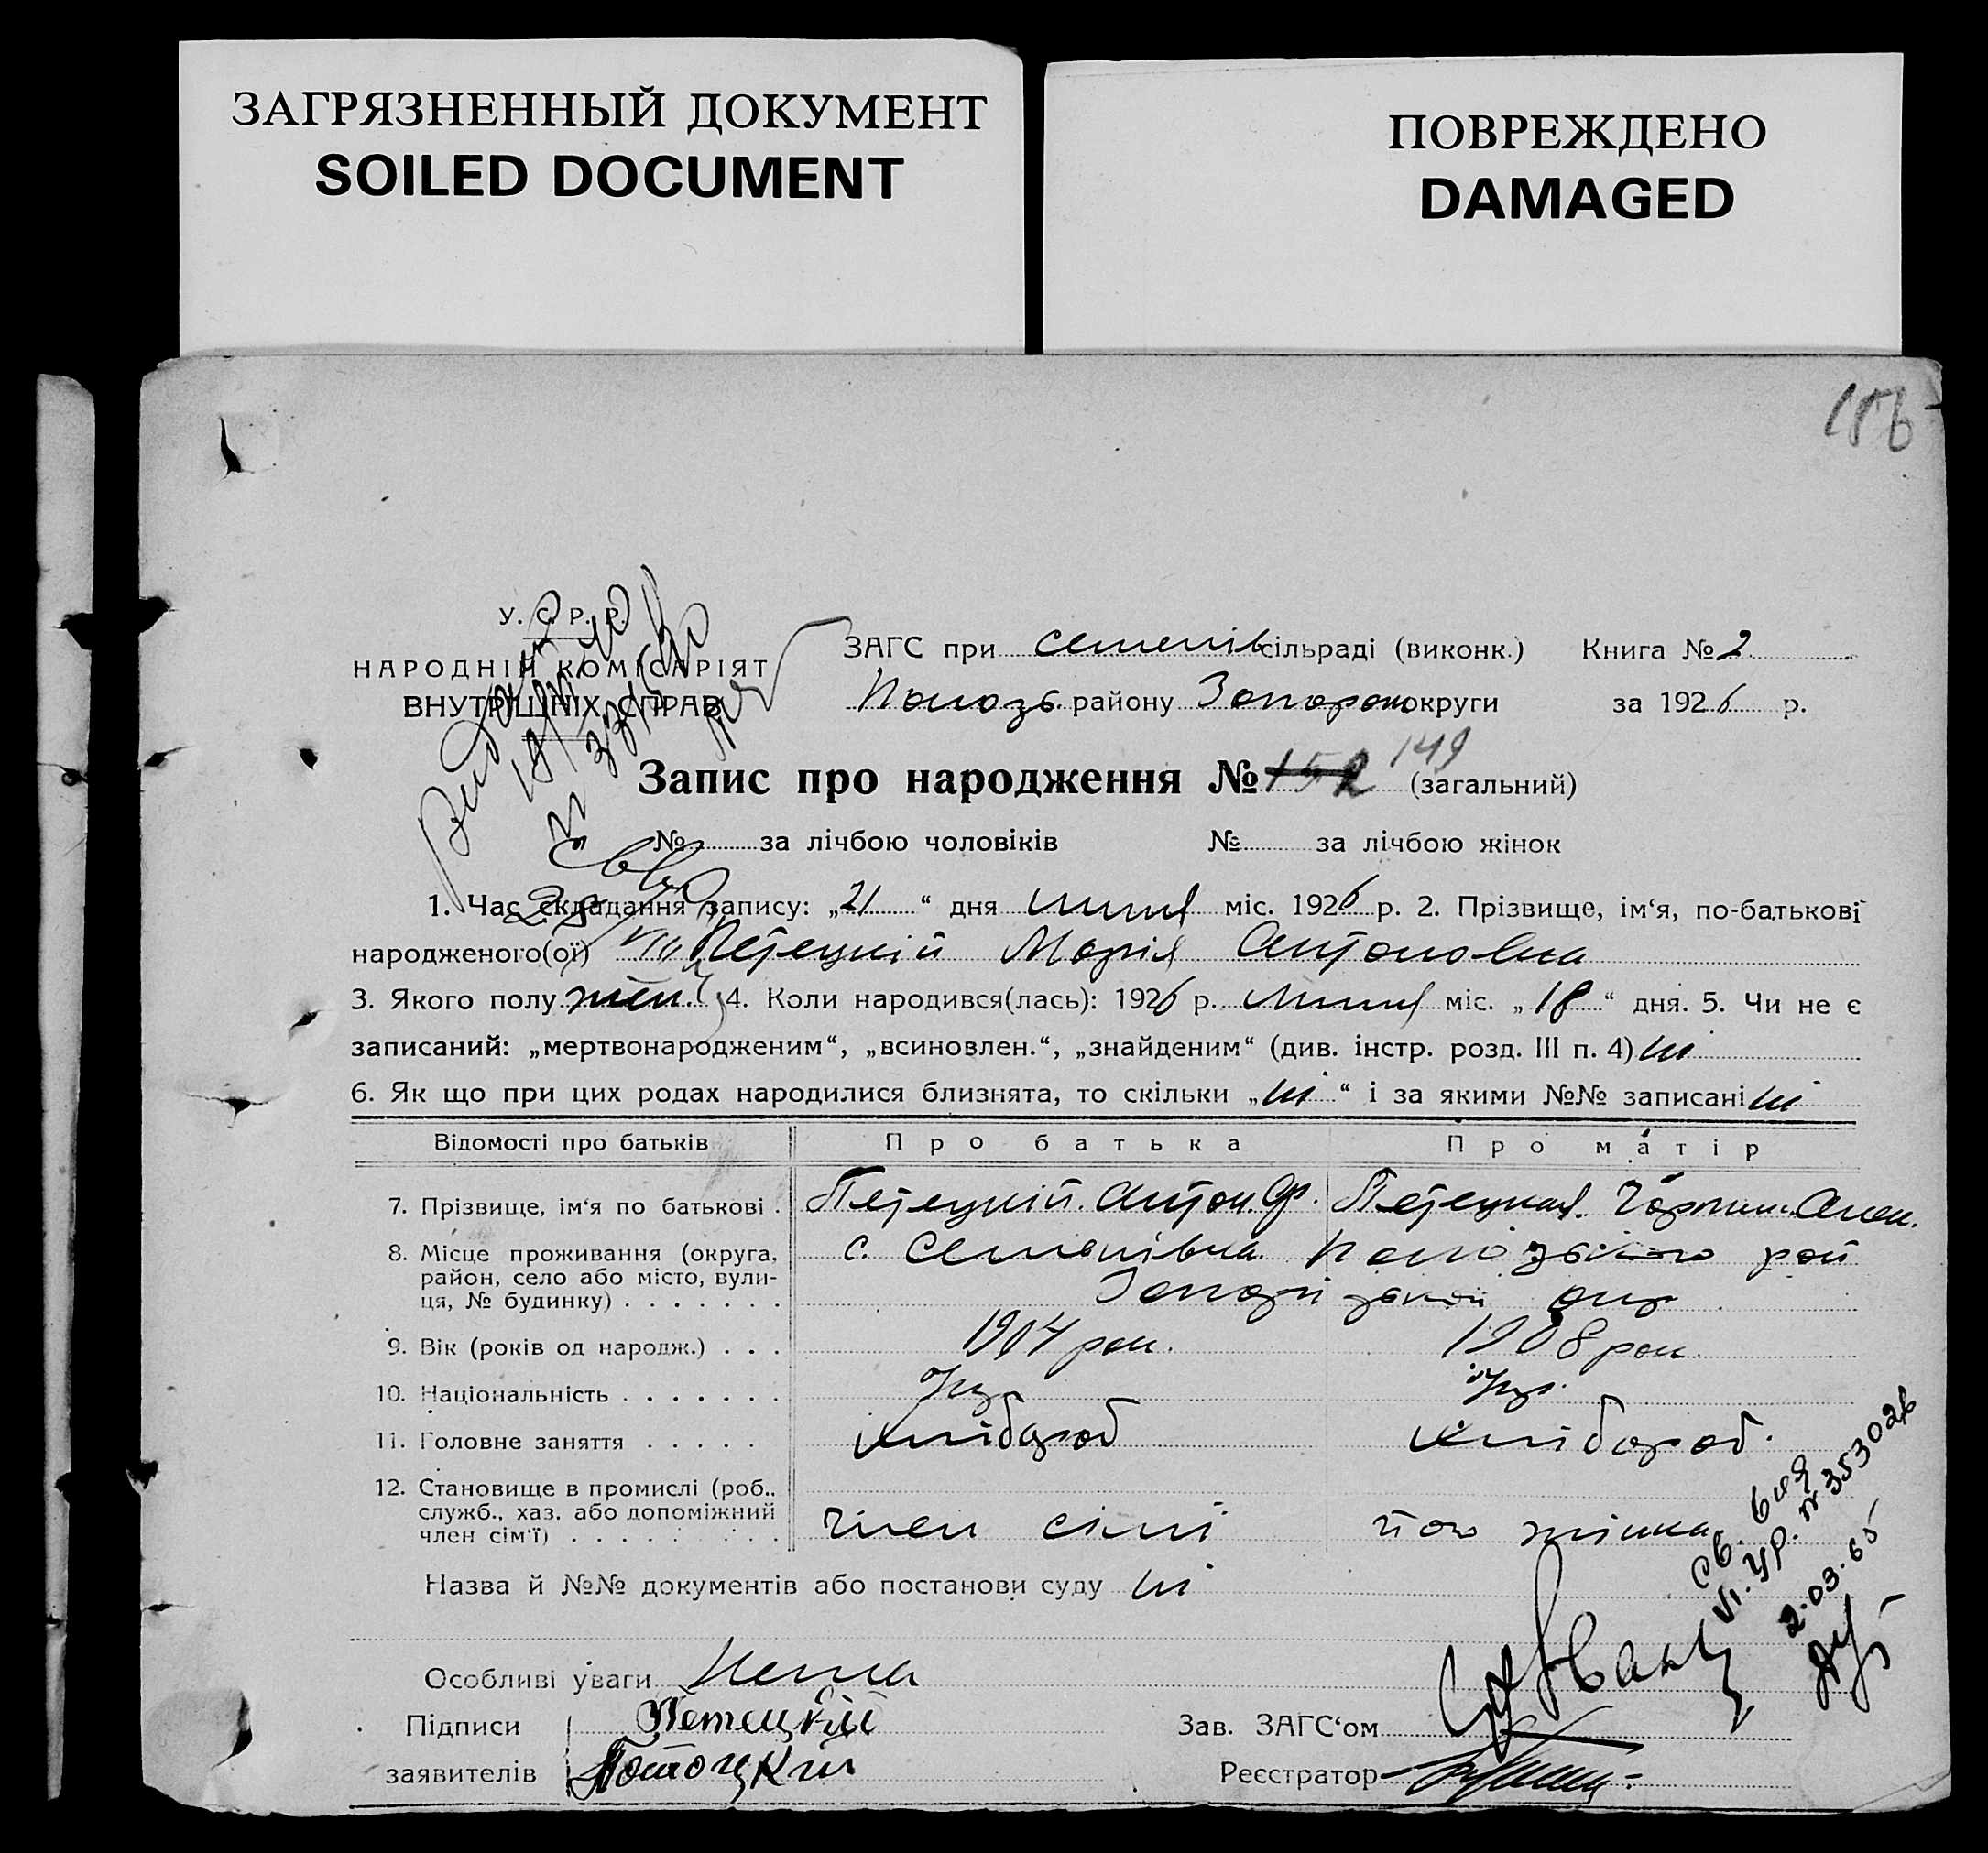 ЗАГРЯЗНЕННЫЙ ДОКУМЕНТ
SOILED DOCUMENT
ПОВРЕЖДЕНО
DAMAGED
У. С. Р. Р.
НАРОДНІЙ КОМІСАРІЯТ
ВНУТРІШНІХ СПРАВ
ЗАГС при Семенів сільраді (виконк.) Книга № 2
району округи за 1926 р.
Запис про народження № 152 149 (загальний)
№ за лічбою чоловіків № за лічбою жінок
1. Час складання запису: „21“ дня липня міс. 1926 р. 2. Прізвище, ім‘я, по-батькові
народженого(ої) Петецкій Марія Антоновна
3. Якого полу жін. 4. Коли народився(лась): 1926 р. липня міс. „18“ дня. 5. Чи не є
записаний: „мертвонародженим“, „всиновлен.“, „знайденим“ (див. інстр. розд. III п. 4) ні
6. Як що при цих родах народилися близнята, то скільки „ні“ і за якими №№ записані ні
Відомості про батьків Про батька Про матір
7. Прізвище, ім‘я по батькові . Петецкій Антон Петецкая
8. Місце проживання (округа, с. Семенівка рай
район, село або місто, вули-
ця, № будинку) . . . . . . . окр
9. Вік (років од народж.) . . . 1904 рок. 1908 рок.
10. Національність . . . . . . . Укр Укр.
11. Головне заняття . . . . . хлібороб хлібороб.
12. Становище в промислі (роб.,
служб., хаз. або допоміжний
член сім‘ї) . . . . . . . . . член сімі його жінка
Назва й №№ документів або постанови суду ні
Св.
№ 353026
2.03.65
Особливі уваги Нема
Підписи Петецкій Зав. ЗАГС‘ом
заявителів Потоцкий Реєстратор